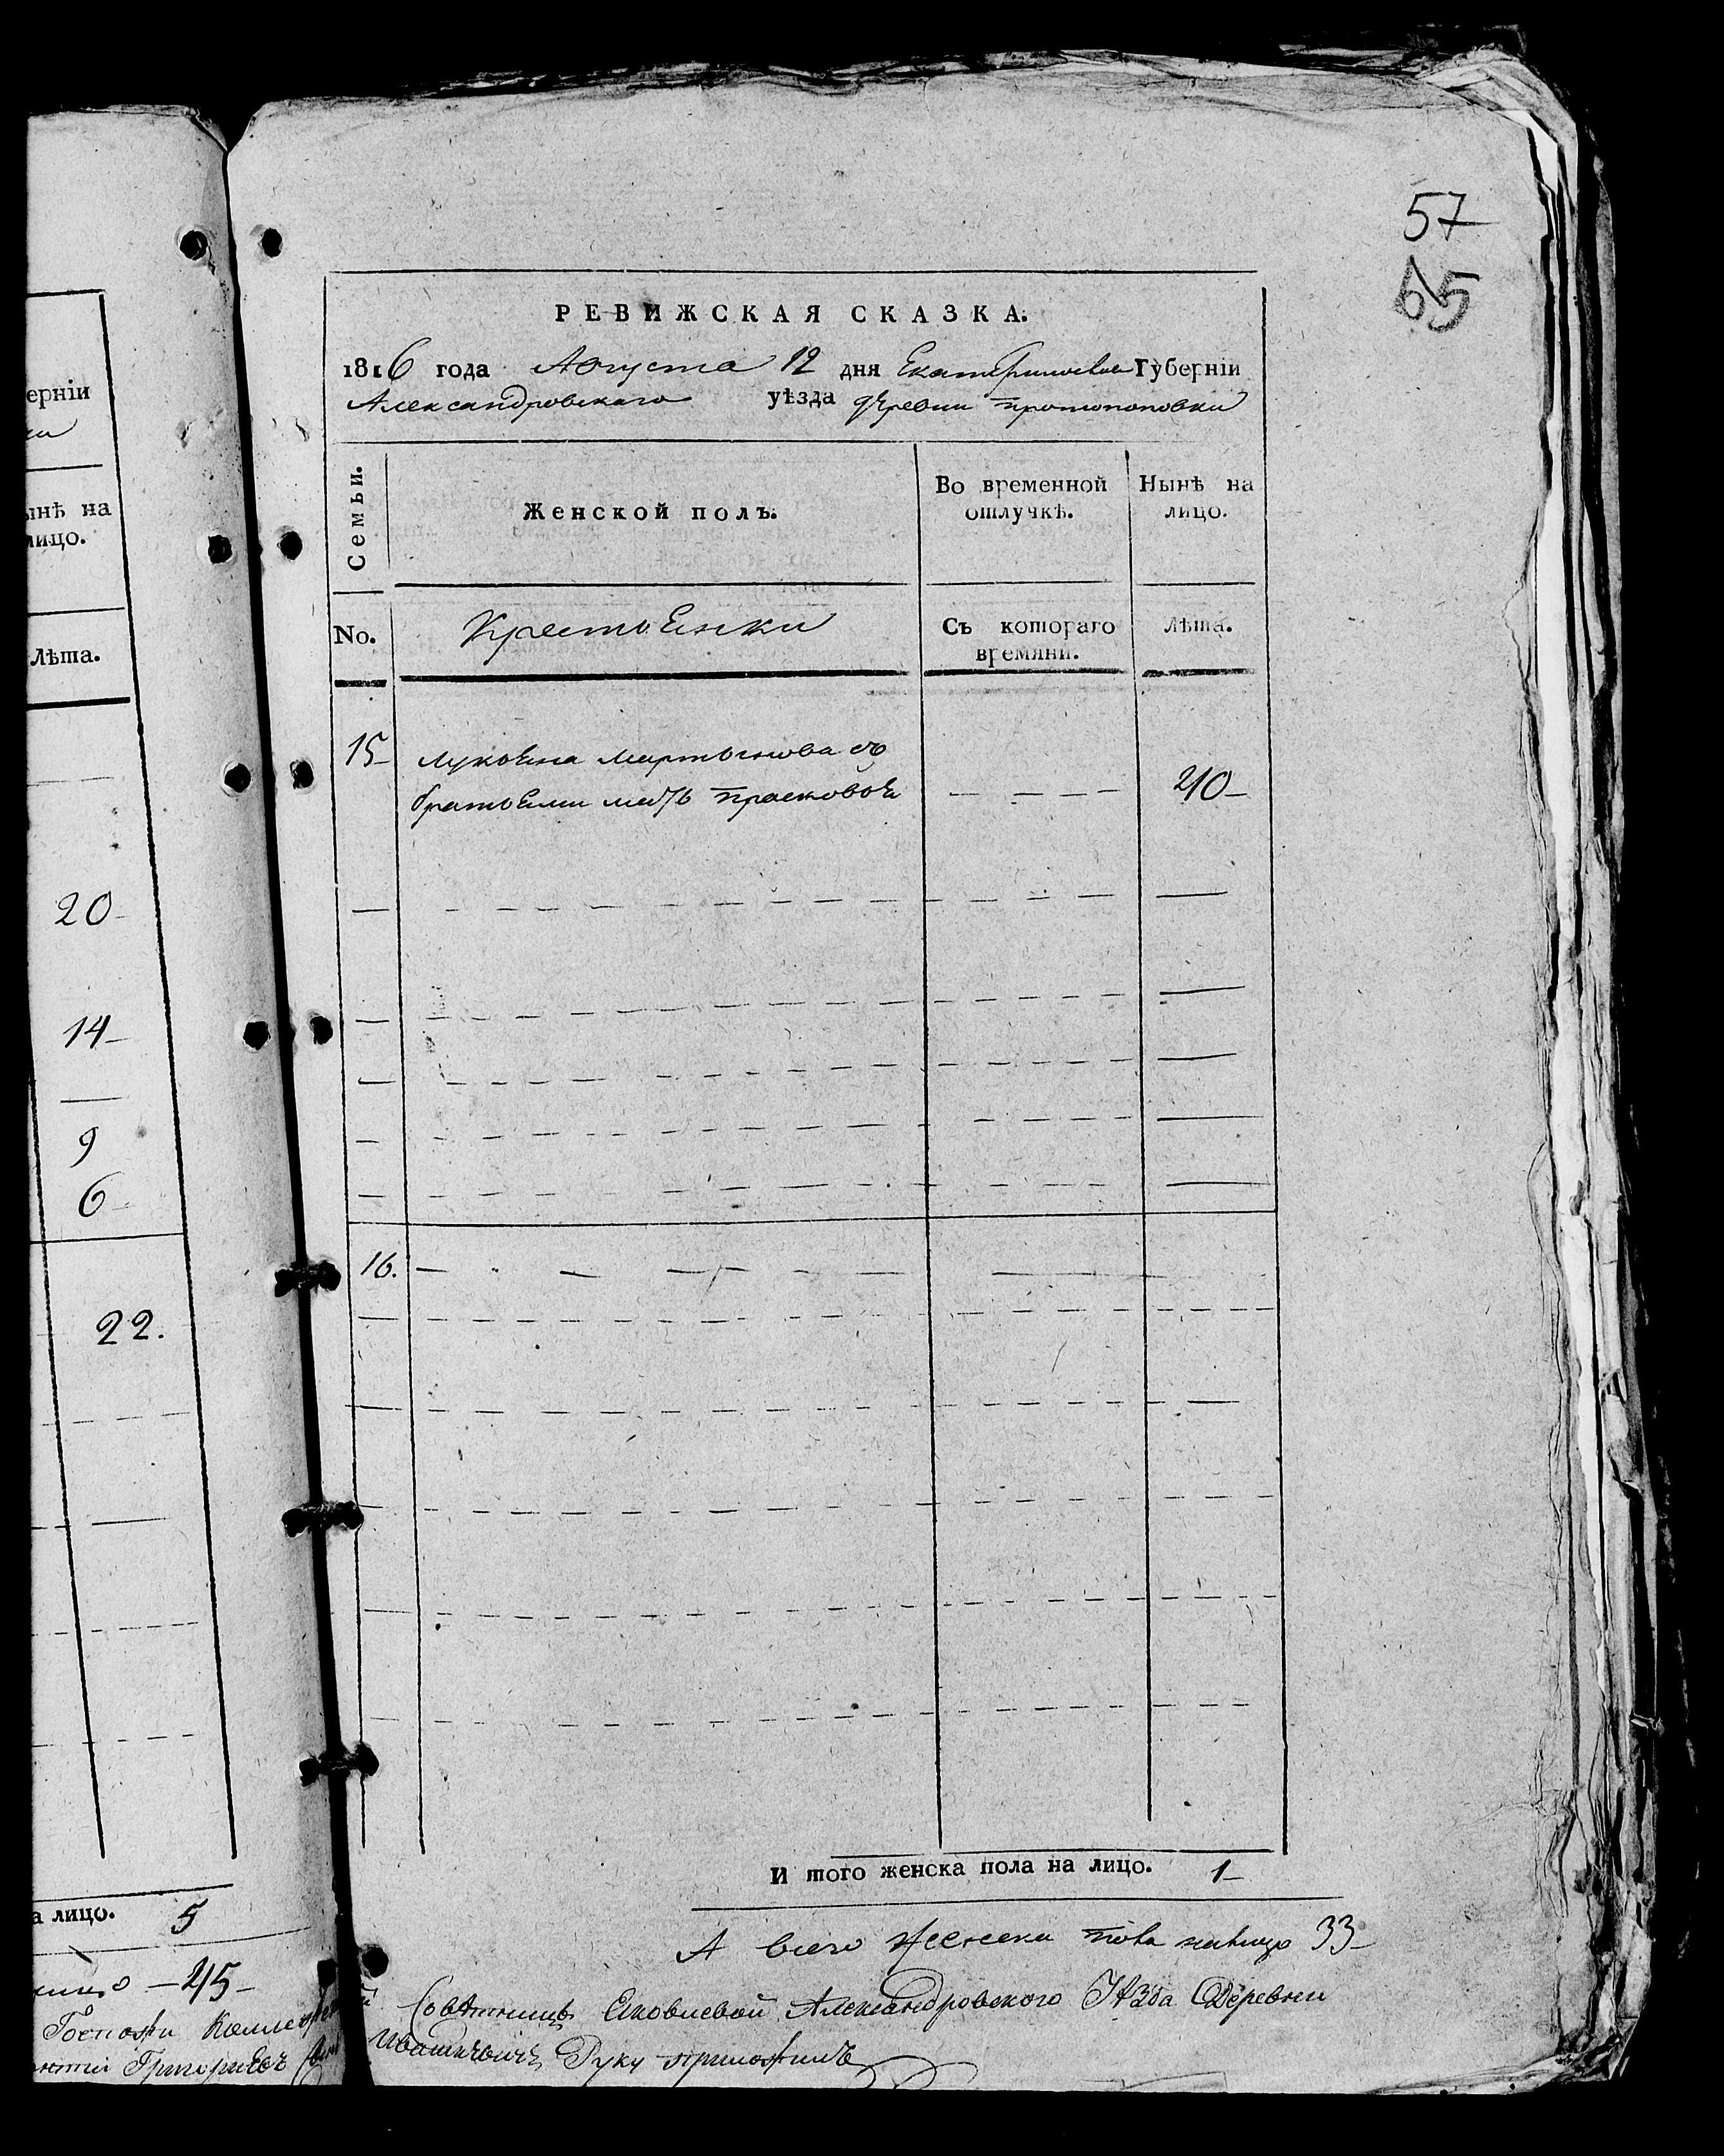 ерніи
ынѣ на
лицо.
Лѣта.
20
14
9
6
22.
а лицо. 5
45
Госпожи Коллеж
Григориевъ
57
65
РЕВИЖСКАЯ СКАЗКА.
1816 года Августа 12 дня Екатеринослав Губерніи
Александровскаго уѣзда деревни протопоповки
Семьи.
Женской полъ.
Во временной
отлучкѣ.
Нынѣ на
лицо.
No.
Крестьянки
Съ котораго
времяни.
Лѣта.
15
мартынова съ
братьями мать 40
16.
И того женска пола на лицо. 1
А всего женска пола налицо 33
Совѣтницы Яковлевой Александровского уѣзда Деревни
Руку приложилъ